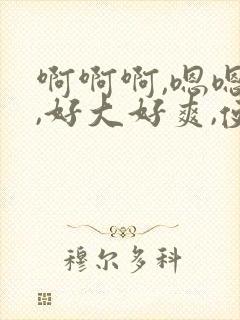 啊啊啊,嗯嗯
,好大好爽,
穆尔多科